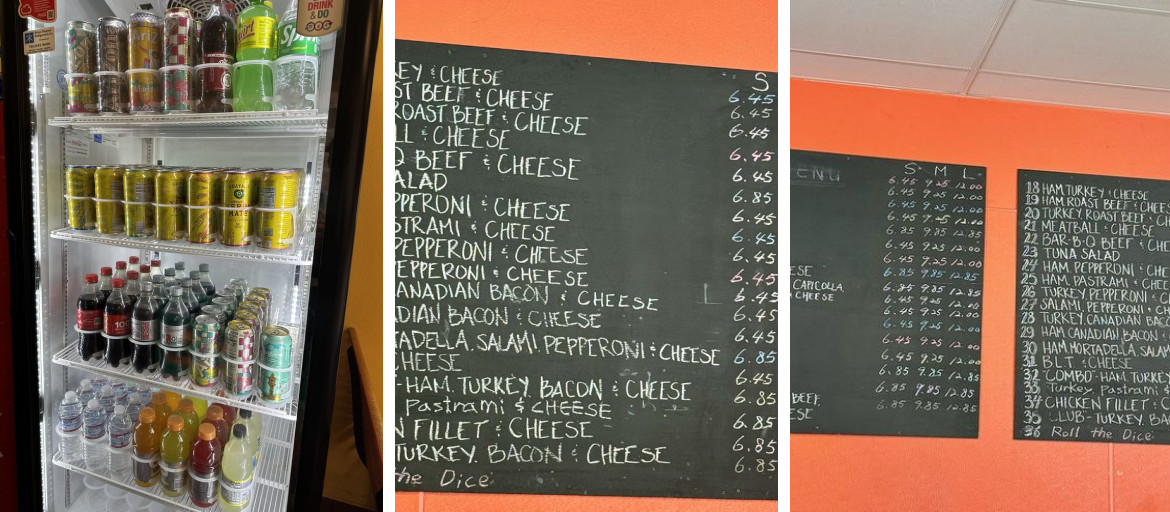 DRINK
& DO
Sprite
S
EY & CHEESE 6.45
ST BEEF & CHEESE 6.45
ROAST BEEF & CHEESE 6.45
LL & CHEESE 6.45
Q BEEF & CHEESE 6.45
ALAD 6.85
PPERONI & CHEESE 6.45
STRAMI & CHEESE 6.45
PEPPERONI & CHEESE 6.45
EPPERONI & CHEESE 6.45
ANADIAN BACON & CHEESE 6.45
DIAN BACON & CHEESE 6.45
TADELLA, SALAMI, PEPPERONI & CHEESE 6.45
CHEESE 6.85
-HAM, TURKEY, BACON & CHEESE 6.45
Pastrami & CHEESE 6.85
N FILLET & CHEESE 6.85
TURKEY, BACON & CHEESE 6.85
he Dice 6.85
ENU
S M L
6.45 9.25 12.00
6.45 9.25 12.00
6.45 9.25 12.00
6.45 9.25 12.00
6.85 9.85 12.85
6.45 9.25 12.00
6.45 9.25 12.00
ESE 6.85 9.85 12.85
CAPICOLLA, 6.85 9.85 12.85
& CHEESE 6.45 9.25 12.00
6.45 9.25 12.00
6.45 9.25 12.00
6.45 9.25 12.00
6.85 9.85 12.85
BEEF, 6.85 9.85 12.85
ESE 6.85 9.85 12.85
18 HAM, TURKEY & CHEESE
19 HAM, ROAST BEEF & CHE
20 TURKEY, ROAST BEEF &
21 MEATBALL & CHEESE
22 BAR-B-Q BEEF & CH
23 TUNA SALAD
24 HAM, PEPPERONI & CHE
25 HAM, PASTRAMI & CHE
26 TURKEY, PEPPERONI &
27 SALAMI, PEPPERONI &
28 TURKEY, CANADIAN BAC
29 HAM, CANADIAN BACON
30 HAM, MORTADELLA, SALAM
31 B.L.T. & CHEESE
32 "COMBO"-HAM, TURKEY
33 Turkey, Pastrami
34 CHICKEN FILLET & C
35 CLUB-TURKEY, BA
36 Roll the Dice